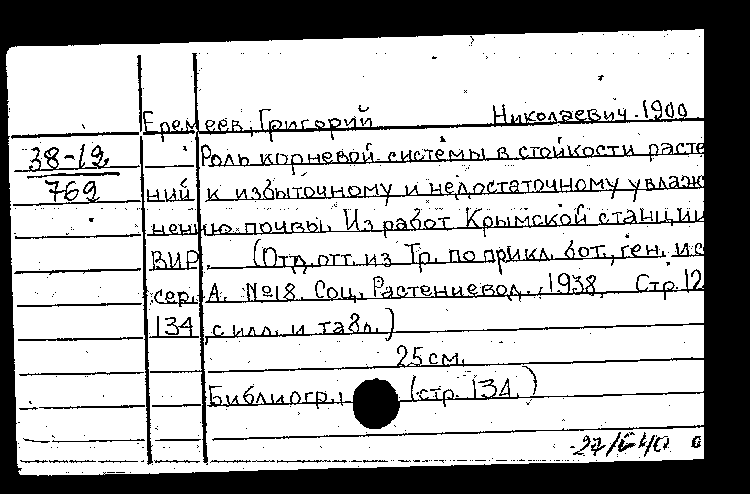 Еремеев, Григорий Николаевич. 1900
38-19 Роль корневой системы в стойкости расте
769 ний к избыточному и недостаточному увлаж
нению почвы. Из работ Крымской станции
ВИР. (Отд. отт. из Тр. по прикл. бот., ген. и с
сер. А. №18. Соц. Растениевод., 1938, Стр. 12
134 с илл. и табл.)
25 см.
Библиогр.: (стр. 134.)